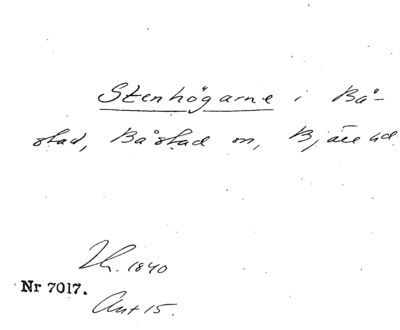 Stenhögarne i Bå-
stad, Båstad sn, Bjäre hd
Th. 1840
Nr 7017.
Ant 15.